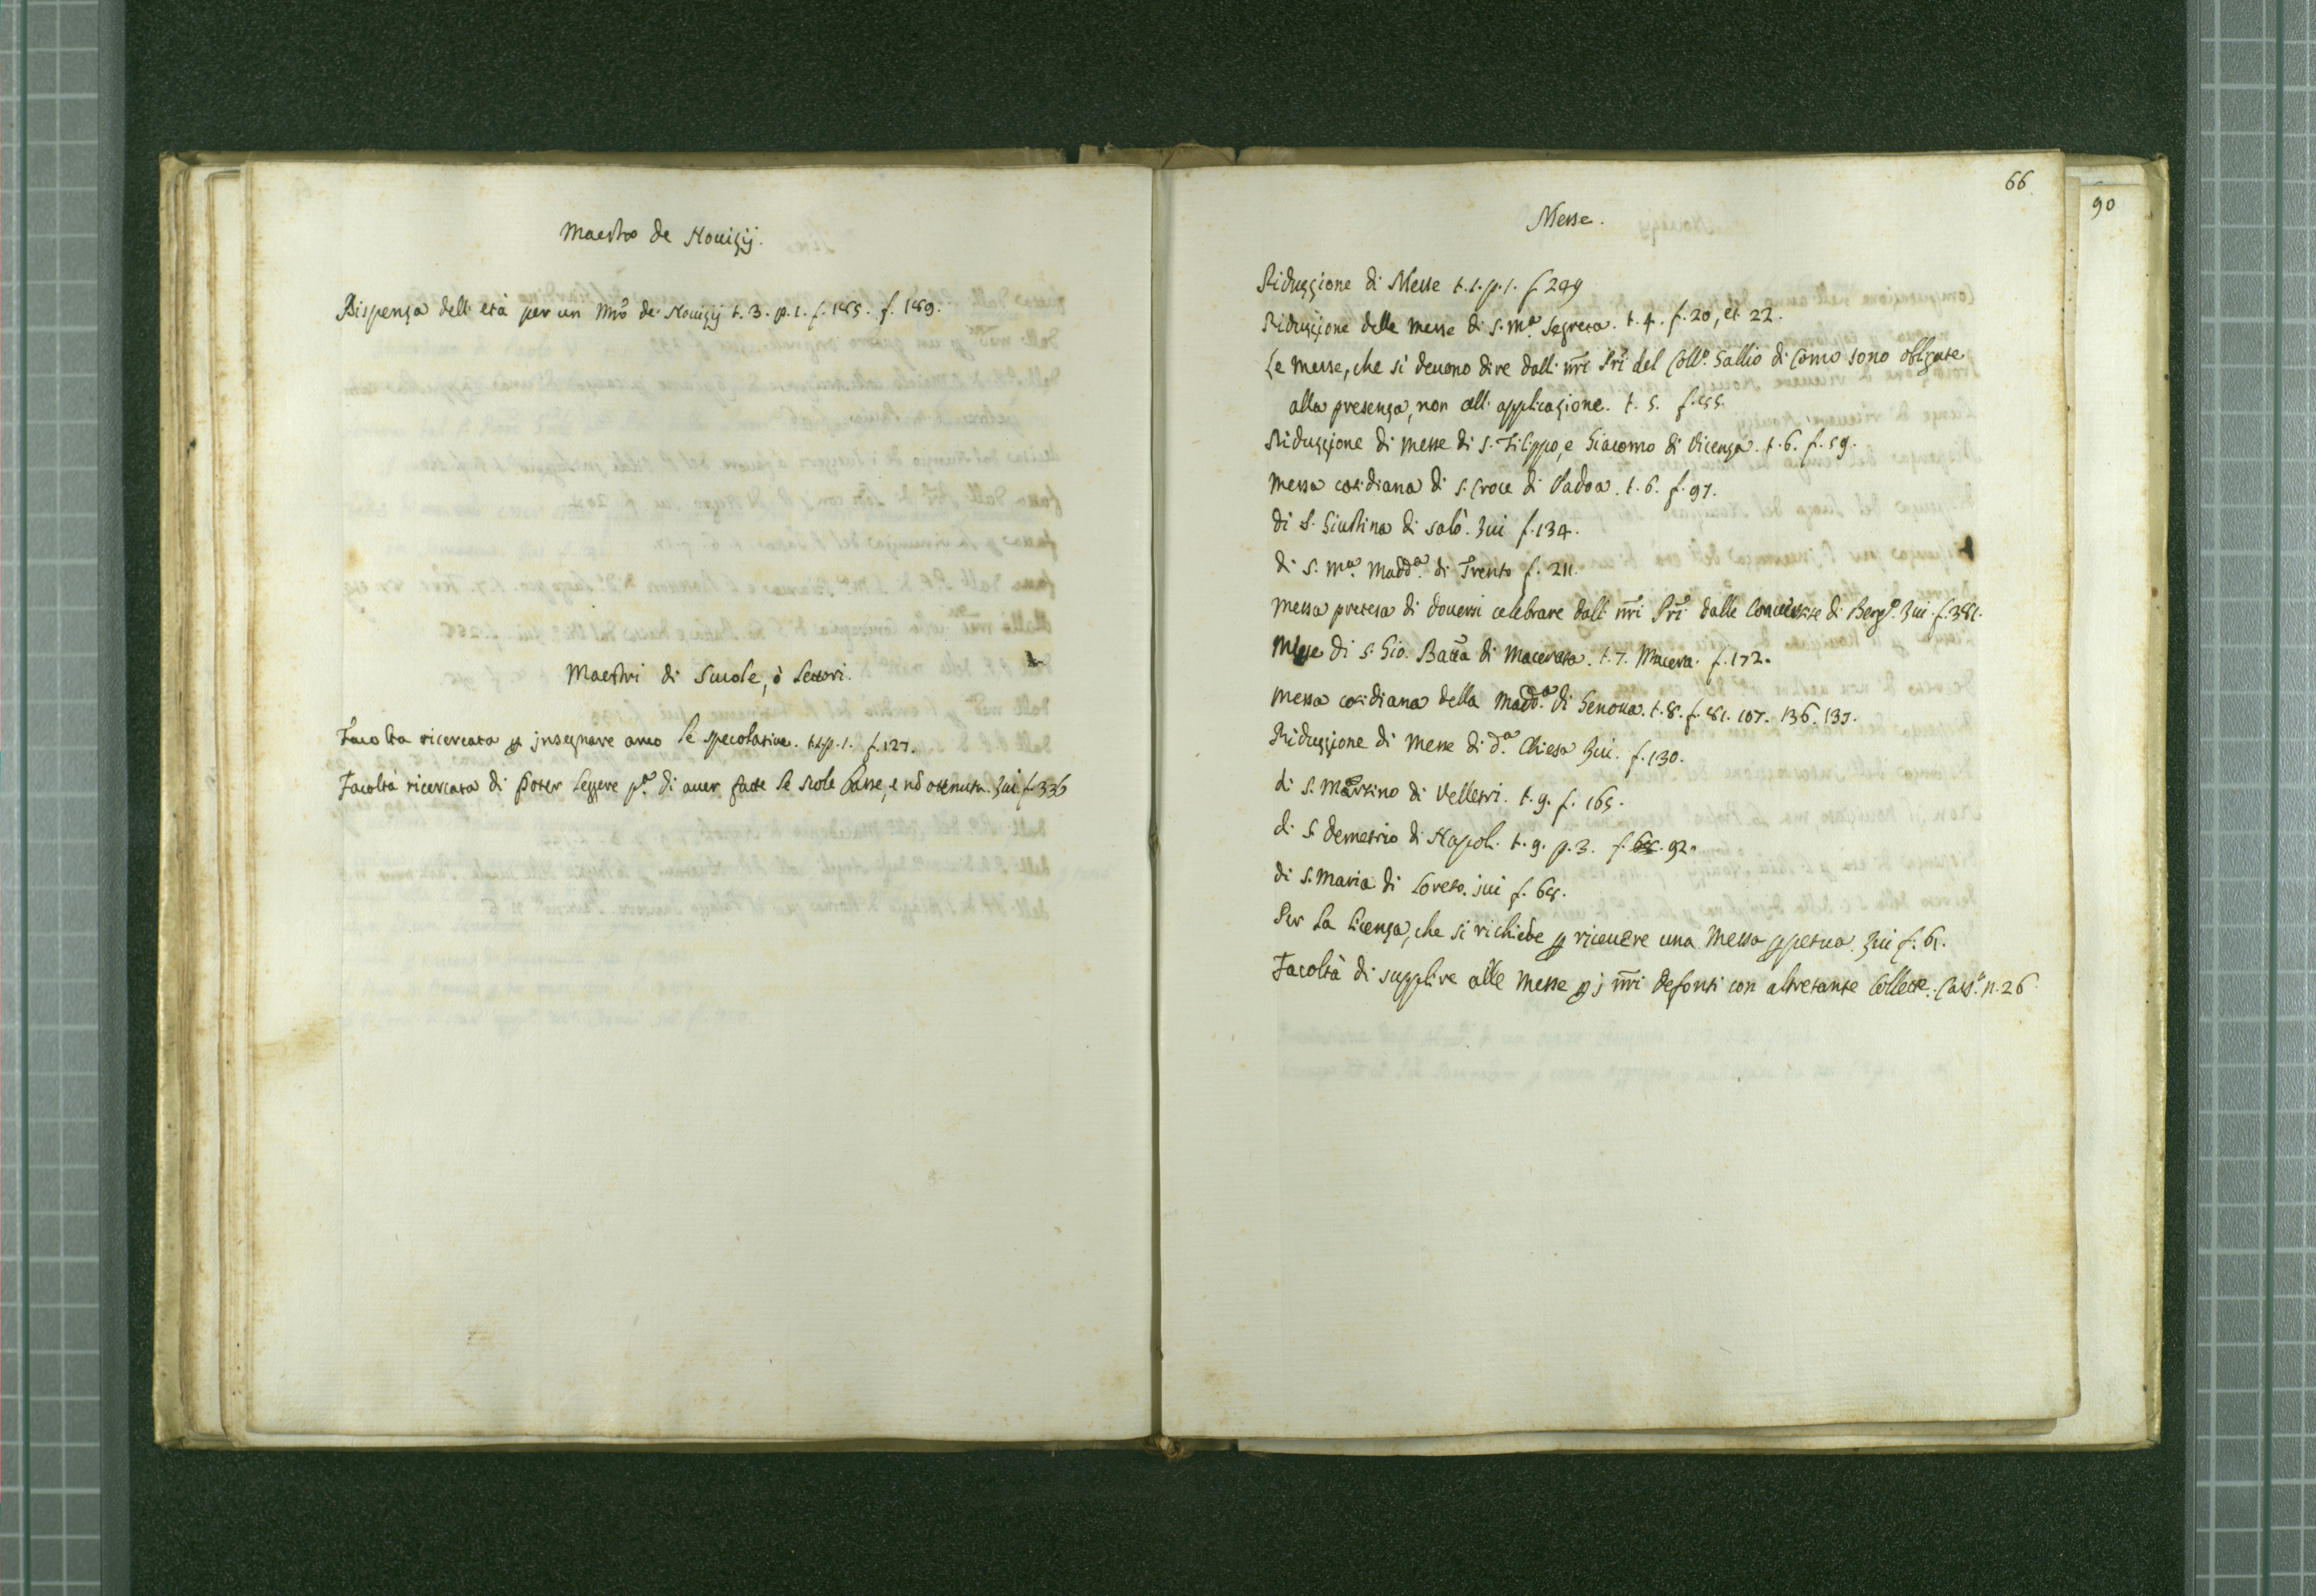 Maestro de Nouizij.
Dispenza dell'età per un Mro de Nouizij t. 3. p. 1. f. 185. f. 189.
Maestri di Scuole, ò Lettori.
Facoltà ricercata p insegnare anco le specolatiue. t.1.p.1. f. 127.
Facoltà ricercata di poter leggere pa. di auer fatte le scole basse, e nõ ottenuta. Iui f. 336
66
90
Messe.
Riduzzione di Messe t. 1. p. 1. f 249
Riduzzione delle messe di S. Ma. Segreta. t. 4. f. 20, et 22.
Le messe, che si deuono dire dalli nri Pri del Collo. Gallio di Como sono obligate
alla presenza, non all' applicazione. t. 5. f.
Riduzzione di messe di S. Filippo, e Giacomo di Vicenza. t. 6. f. 59.
Messa cotidiana di S. Croce di Padoa. t. 6. f. 97.
di S. Giustina di Salò. Iui f. 134.
di S. Ma. Madda. di Trento f. 211.
Messa pretesa di douersi celebrare dalli nri Pri dalle Conuertite di Bergo. Iui. f. 381.
Messe di S. Gio. Batta di Macerata. t. 7. Macera. f. 172.
Messa cotidiana della Madda. di Genoua. t. 8. f. 81. 107. 136. 137.
Riduzzione di Messe di da. Chiesa Iui. f. 130.
di S. Martino di Velletri. t. 9. f. 165.
di S. Demetrio di Napoli. t. 9. p. 3. f. 92.
di S. Maria di Loreto. iui f. 68.
Per la licenza, che si richiede p riceuere una Messa ppetua. Iui f. 61.
Facoltà di supplire alle Messe p i nri defonti con altretante Collette. Casso. n. 26